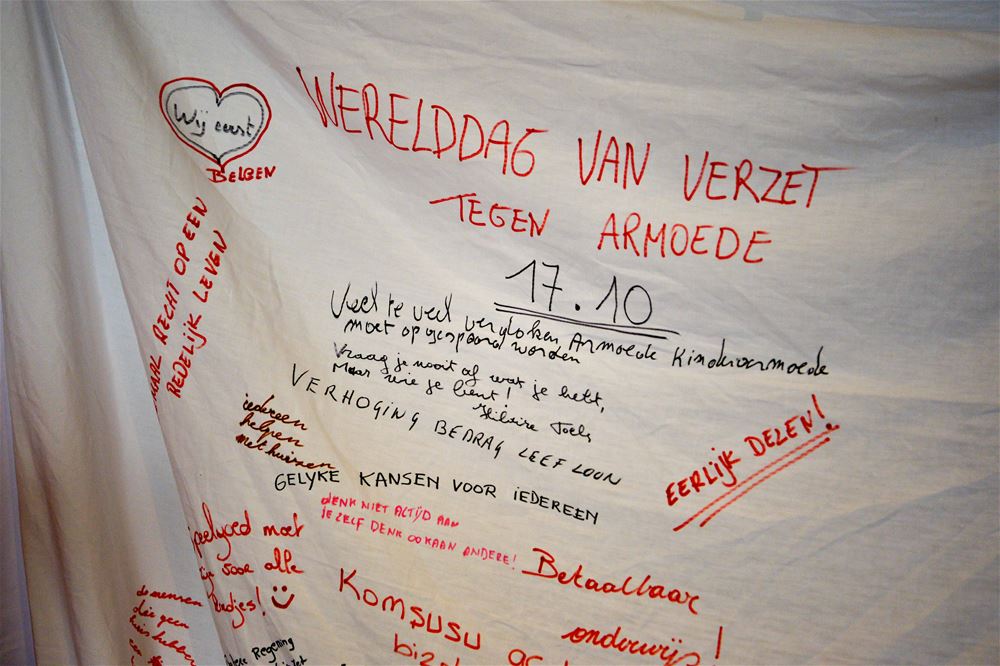 Wij eerst
BELGEN
WERELDDAG VAN VERZET
TEGEN ARMOEDE
17.10
MAAR RECHT OP EEN
REDELIJK LEVEN
Veel te veel verdoken Armoede Kinderarmoede
moet opgespoord worden
Vraag je nooit af wat je hebt,
Maar wie je bent!
VERHOGING BEDRAG LEEFLOON
iedereen
helpen
met huizen
GELYKE KANSEN VOOR iEDEREEN
EERLIJK DELEN!
DENK NIET ALTIJD AAN
JEZELF DENK OOK AAN ANDERE!
Speelgoed moet
zijn voor alle
kindjes!
Betaalbaar
onderwijs!
KOMŞUSU
de mensen
die geen
huis hebben
Regering